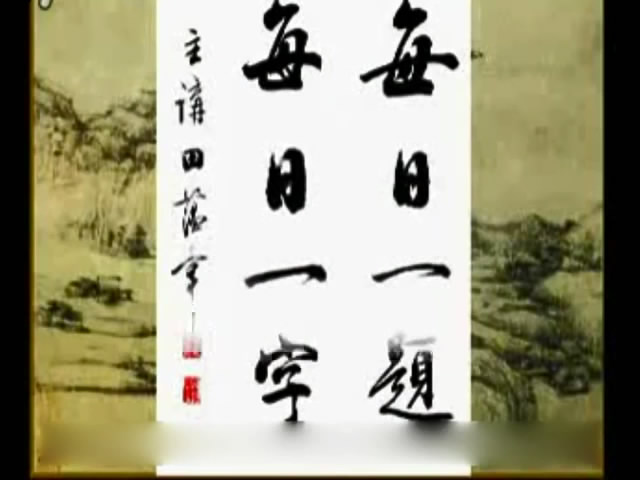 每日一題
每日一字
主講田蘊章